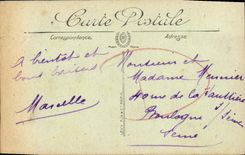 Carte Postale
Correspondance
Adresse
à bientôt et
bons baisers
Marcelle
Monsieur et
Madame Meunier
Boulogne s/ Seine
Seine